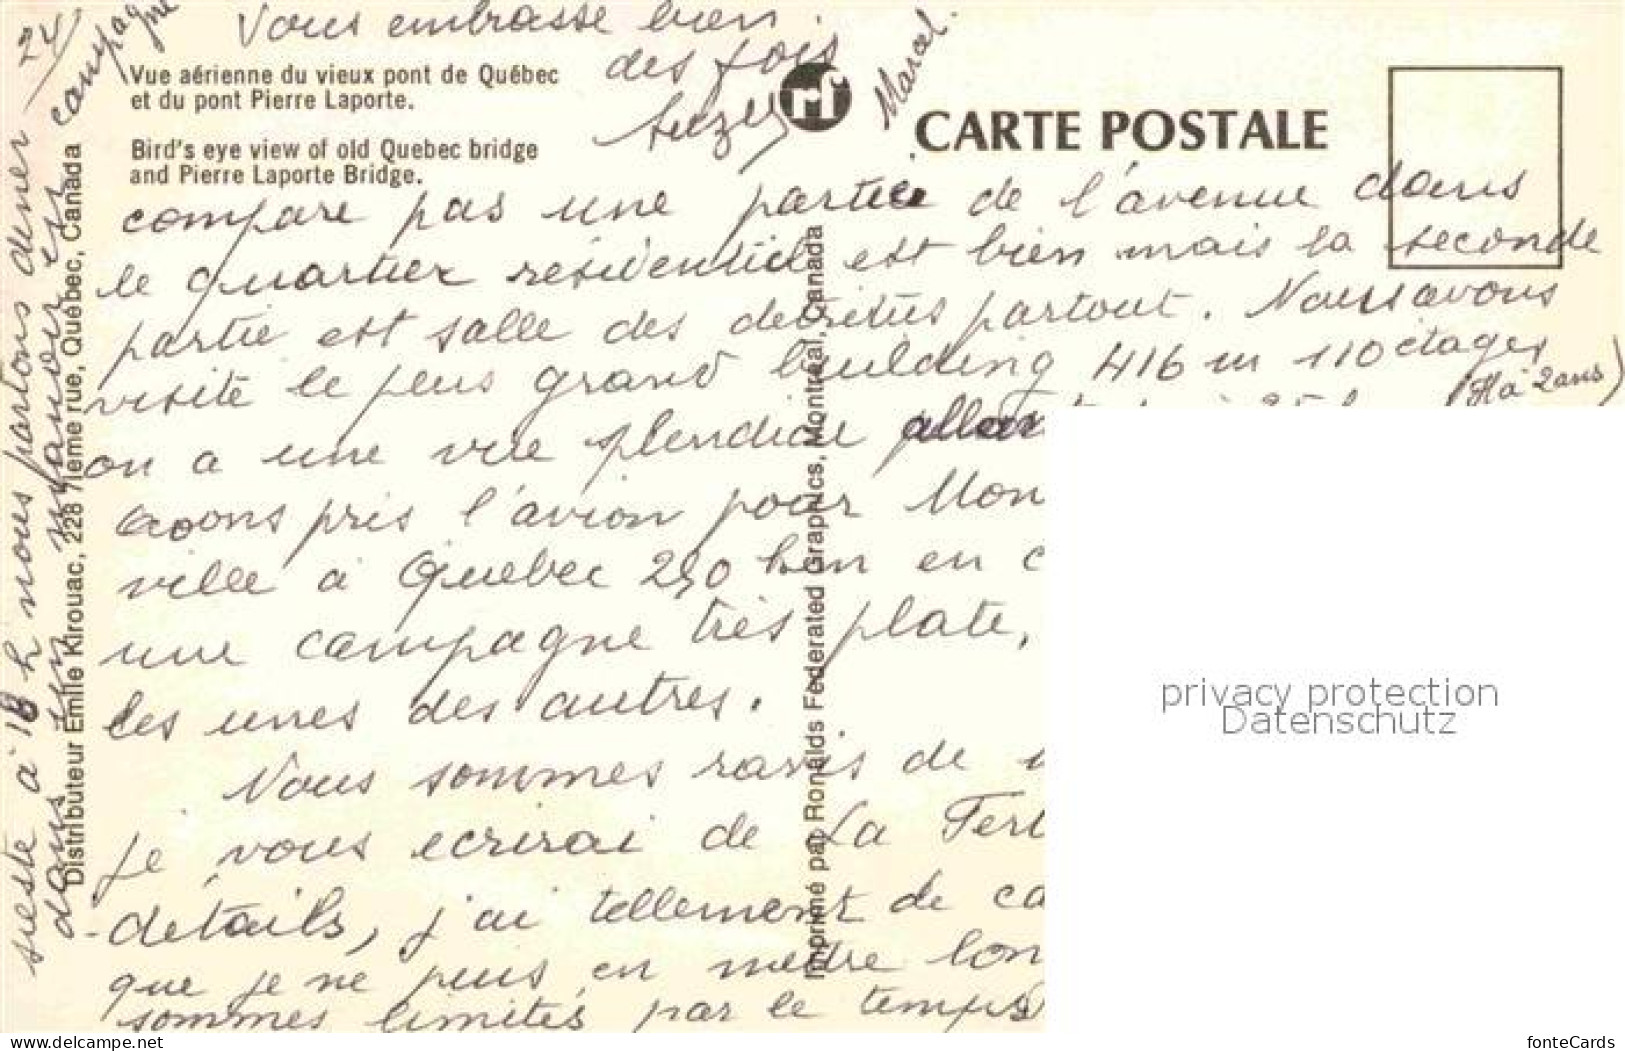 Vous embrasse bien
des fois
Suzy
Marcel
Vue aérienne du vieux pont de Québec
et du pont Pierre Laporte.
Bird's eye view of old Quebec bridge
and Pierre Laporte Bridge.
CARTE POSTALE
compare pas une partie de l'avenue dans
le quartier résidentiel est bien mais la seconde
partie est salle des detritus partout. Nous avons
visité le plus grand building 416 m 110 étages
(H a 2 ans)
on a une vue splendide
avons pris l'avion pour Mon
ville à Québec 250 km en c
une campagne très plate,
les unes des autres.
Nous sommes ravis de
je vous ecrirai de La Fert
détails, j'ai tellement de ca
que je ne peus en mettre lon
sommes limités par le temps
sieste à 18 h nous partons diner
24/
dans un manoir en campagne
Distributeur Emile Kirouac, 228 7ième rue, Québec, Canada
Imprimé par Ronalds Federated Graphics, Montréal, Canada
privacy protection
Datenschutz
www.delcampe.net
fonteCards